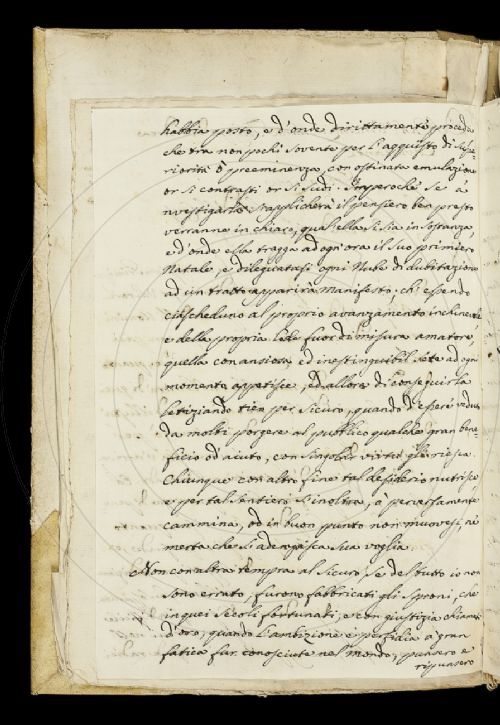 habbia posto, e d'onde dirittamente proceda
che tra non pochi sovente per l'acquisto di Supe=
riorità ò preeminenza, con ostinata emulazione
or si contrasti or si sudi. Imperochè se a
nvestigarlo s'applicherà il pensiero ben presto
verranno in chiaro, qual ella si sia in sostanza
e d'onde ella tragga ad ogn'ora il suo primiero
Natale, e dileguatasi ogni Nube di dubitazione
ad un tratto apparirà Manifesto, ch'essendo
ciascheduno al proprio avanzamento inchinevole
e della propria lode fuor di misura amatore,
quella con ansiosa, ed inestinguibil sete ad ogni
momento appetisce, ed allora di conseguirla
letiziando tien per sicuro, quando d'essere veduto
da molti porgere al pubblico qualche gran bene=
ficio od aiuto, con singolar virtù gli riesca.
Chiunque con altro fine tal desiderio nutrisce
e per tal sentiero s'inoltra, ò perversamente
cammina, od in buon punto non muovesi, nè
merta che si adempisca sua voglia.
Non con altra tempra al sicuro, se del tutto io non
sono errato, furono fabbricati gli Sproni, che
in quei Secoli fortunati, e con giustizia chiamati
d'oro, quando l'ambizione e perfidia a gran
fatica fur conosciute nel mondo, punsero e
ripunsero